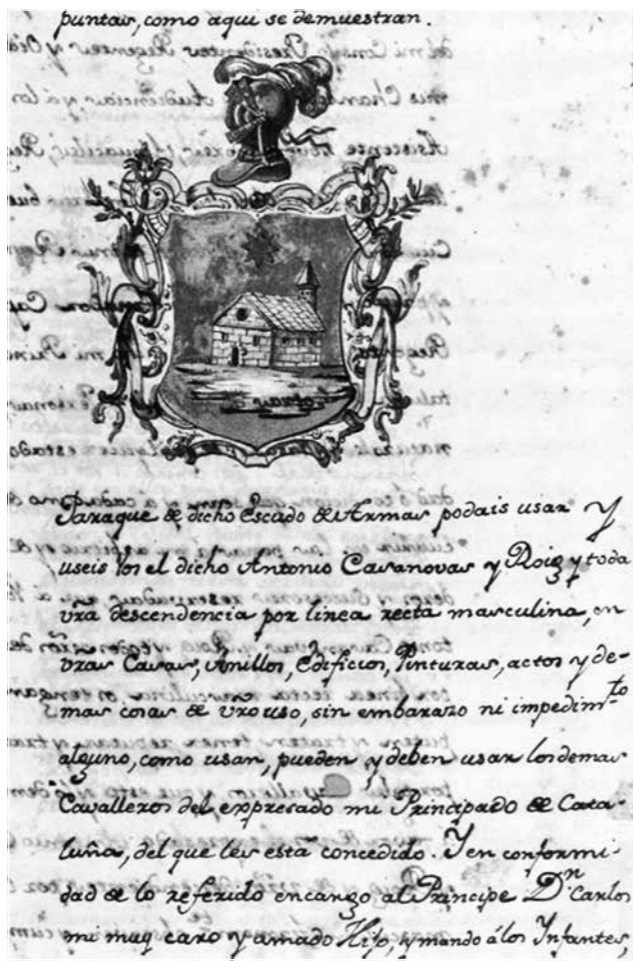 puntas, como aqui se demuestran.
Paraque de dicho Escudo de Armas podais usar y
useis vos el dicho Antonio Casanovas y Roig y toda
vr̃a descendencia por linea recta masculina, en
vr̃as Casas, Anillos, Edificios, Pinturas, actos y de-
mas cosas de vr̃o uso, sin embarazo ni impedim.to
alguno, como usan, pueden y deben usar los demas
Cavalleros del expresado mi Principado de Cata-
luña, del que les esta concedido. Y en conformi-
dad de lo referido encargo al Principe D.n Carlos
mi muy caro y amado Hijo, y mando á los Infantes,